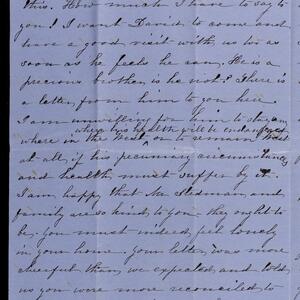 this. How much I have to say to
you! I want David to come and
have a good visit with us too as
soon as he feels he can. He is a
precious brother is he not? There is
a letter from him to you here.
I am unwilling for him to stay any
where his health will be endangered
where in the West or remain West
at all, if his pecuniary circumstances
and health must suffer by it.
I am happy that Mr Stedman and
family are so kind to you. they ought to
be. You must indeed, feel lonely
in your home. Your letter was more
cheerful than we expected and told
us you were more reconciled to